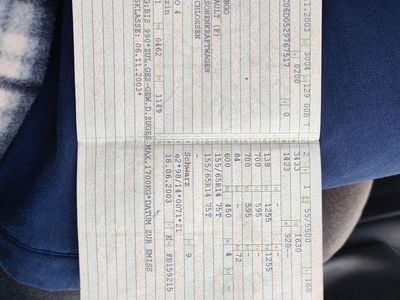 11.2003 3004 129 00B 7
0200
006D0529767517 0
NGO
AULT (F)
SONENKRAFTWAGEN
CHLOSSEN
O 4
zin
1 0462 1149
G:BIS 990*ZUL.GES-GEW.D.ZUGES MAX.1700KG*DATUM ZUR EMISS
SKLASSE: 06.11.2003*
2 1 55/5500
3433 1630
1423 920--
138 1255 1255
700 595
700 595
84 72
600 450 4 -
155/65R14 75T
155/65R14 75T
-
Schwarz 9
e2*98/14*0071*21
18.06.2003 FB159215